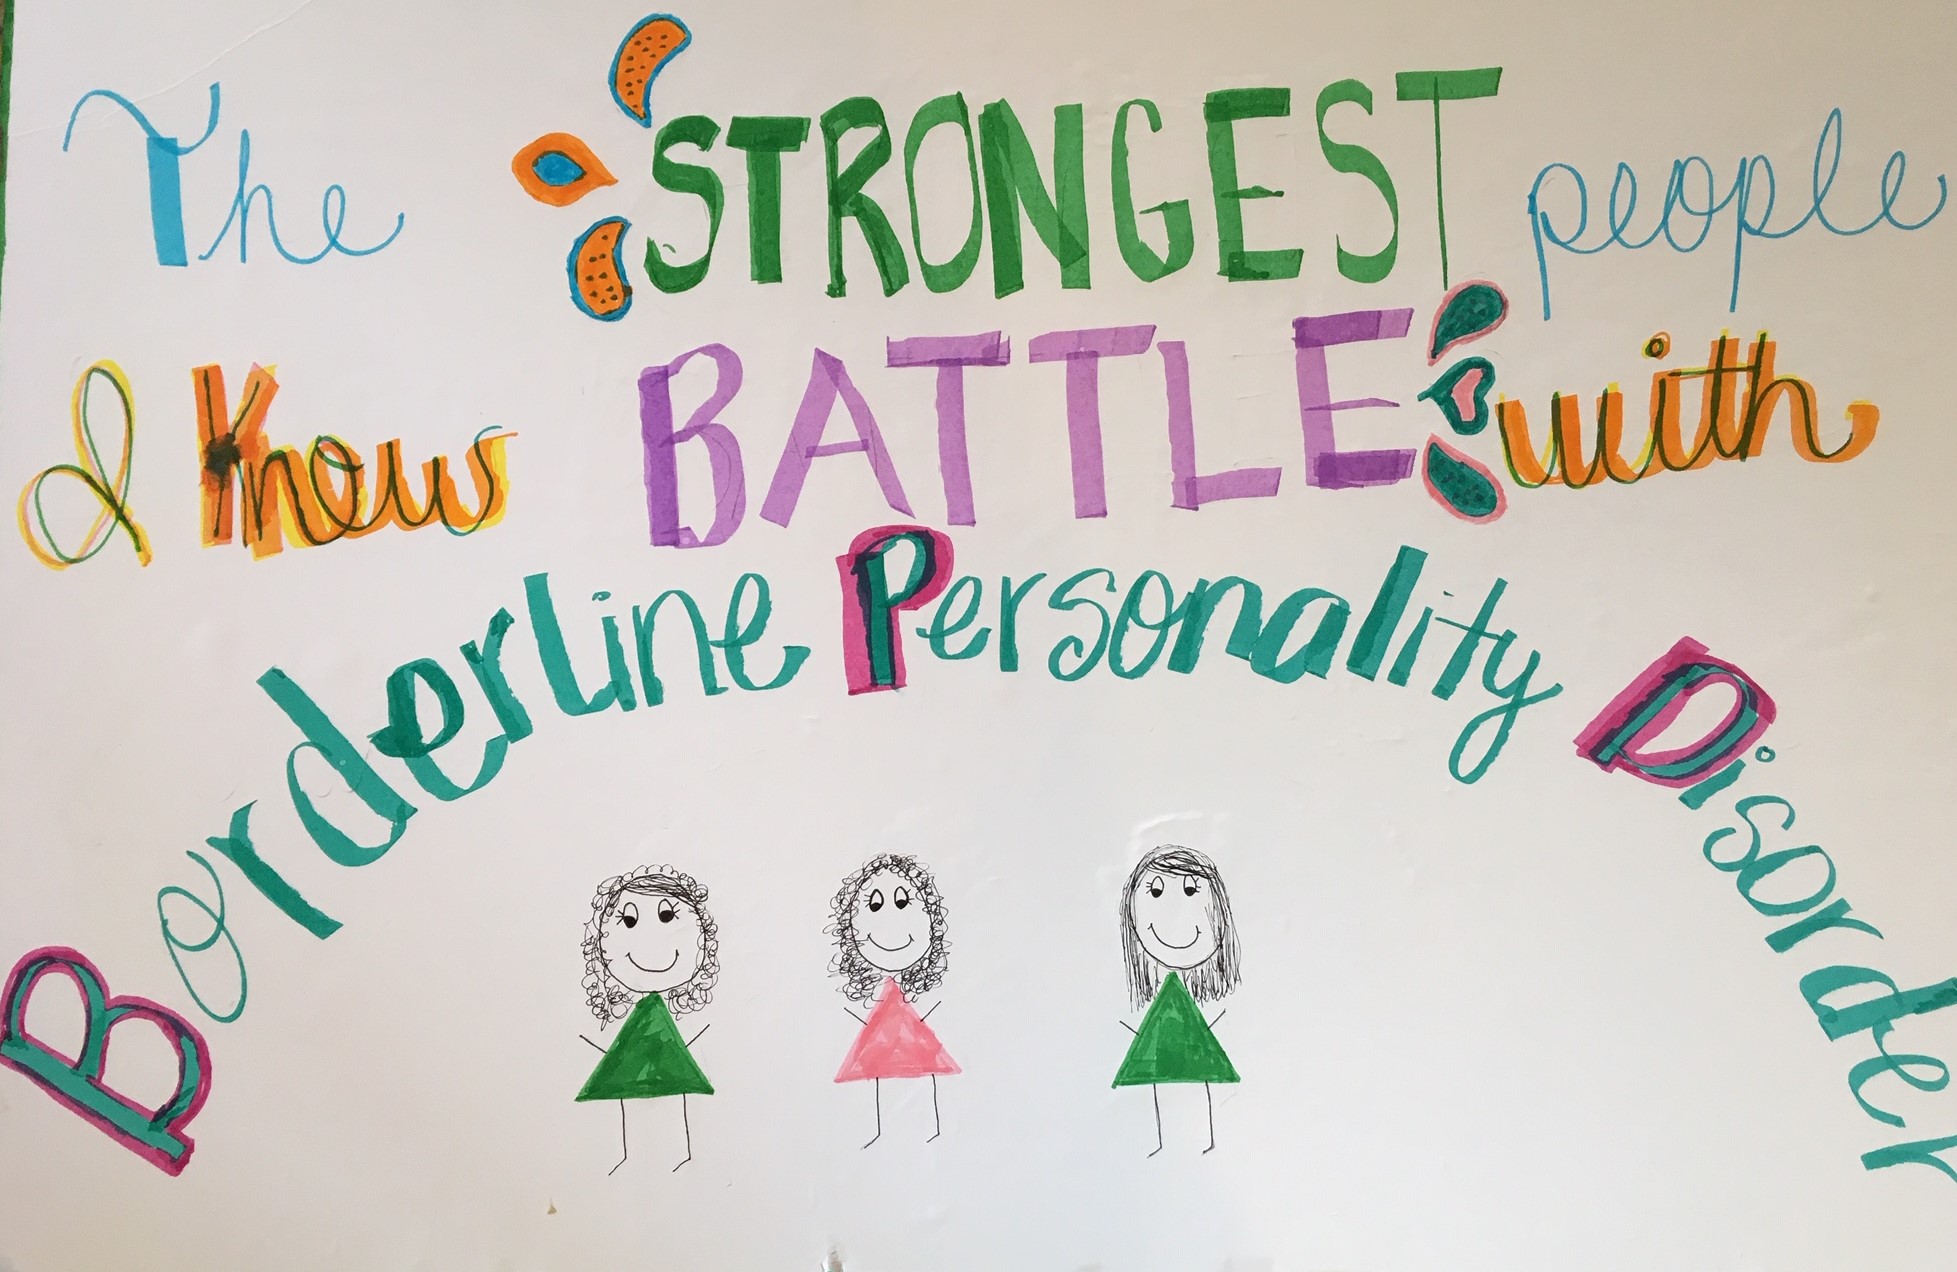 The STRONGEST people
I Know BATTLE with
Borderline Personality Disorder